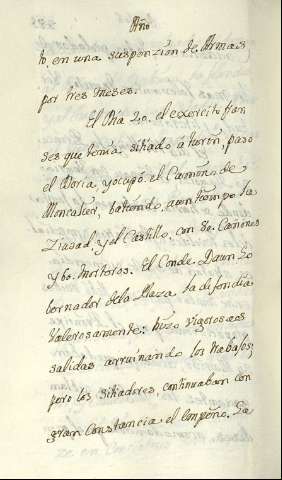 Año
to, en una suspenzion de Armas,
por tres meses.
El Dia 20. el exercito fran-
ses que tenia sitiado à turin, paso
el Doria, y ocupó el Camino de
Moncalier, batiendo, a un tiempo la
Ziudad, y el Castillo, con 80. Cañones
y 60. Morteros. El Conde Daun Go
bernador dela Plaza la defendia
Valerosamente: hizo vigorosas
salidas arruinando los trabajos;
pero los sitiadores, continuaban con
gran Constancia el empeño. La